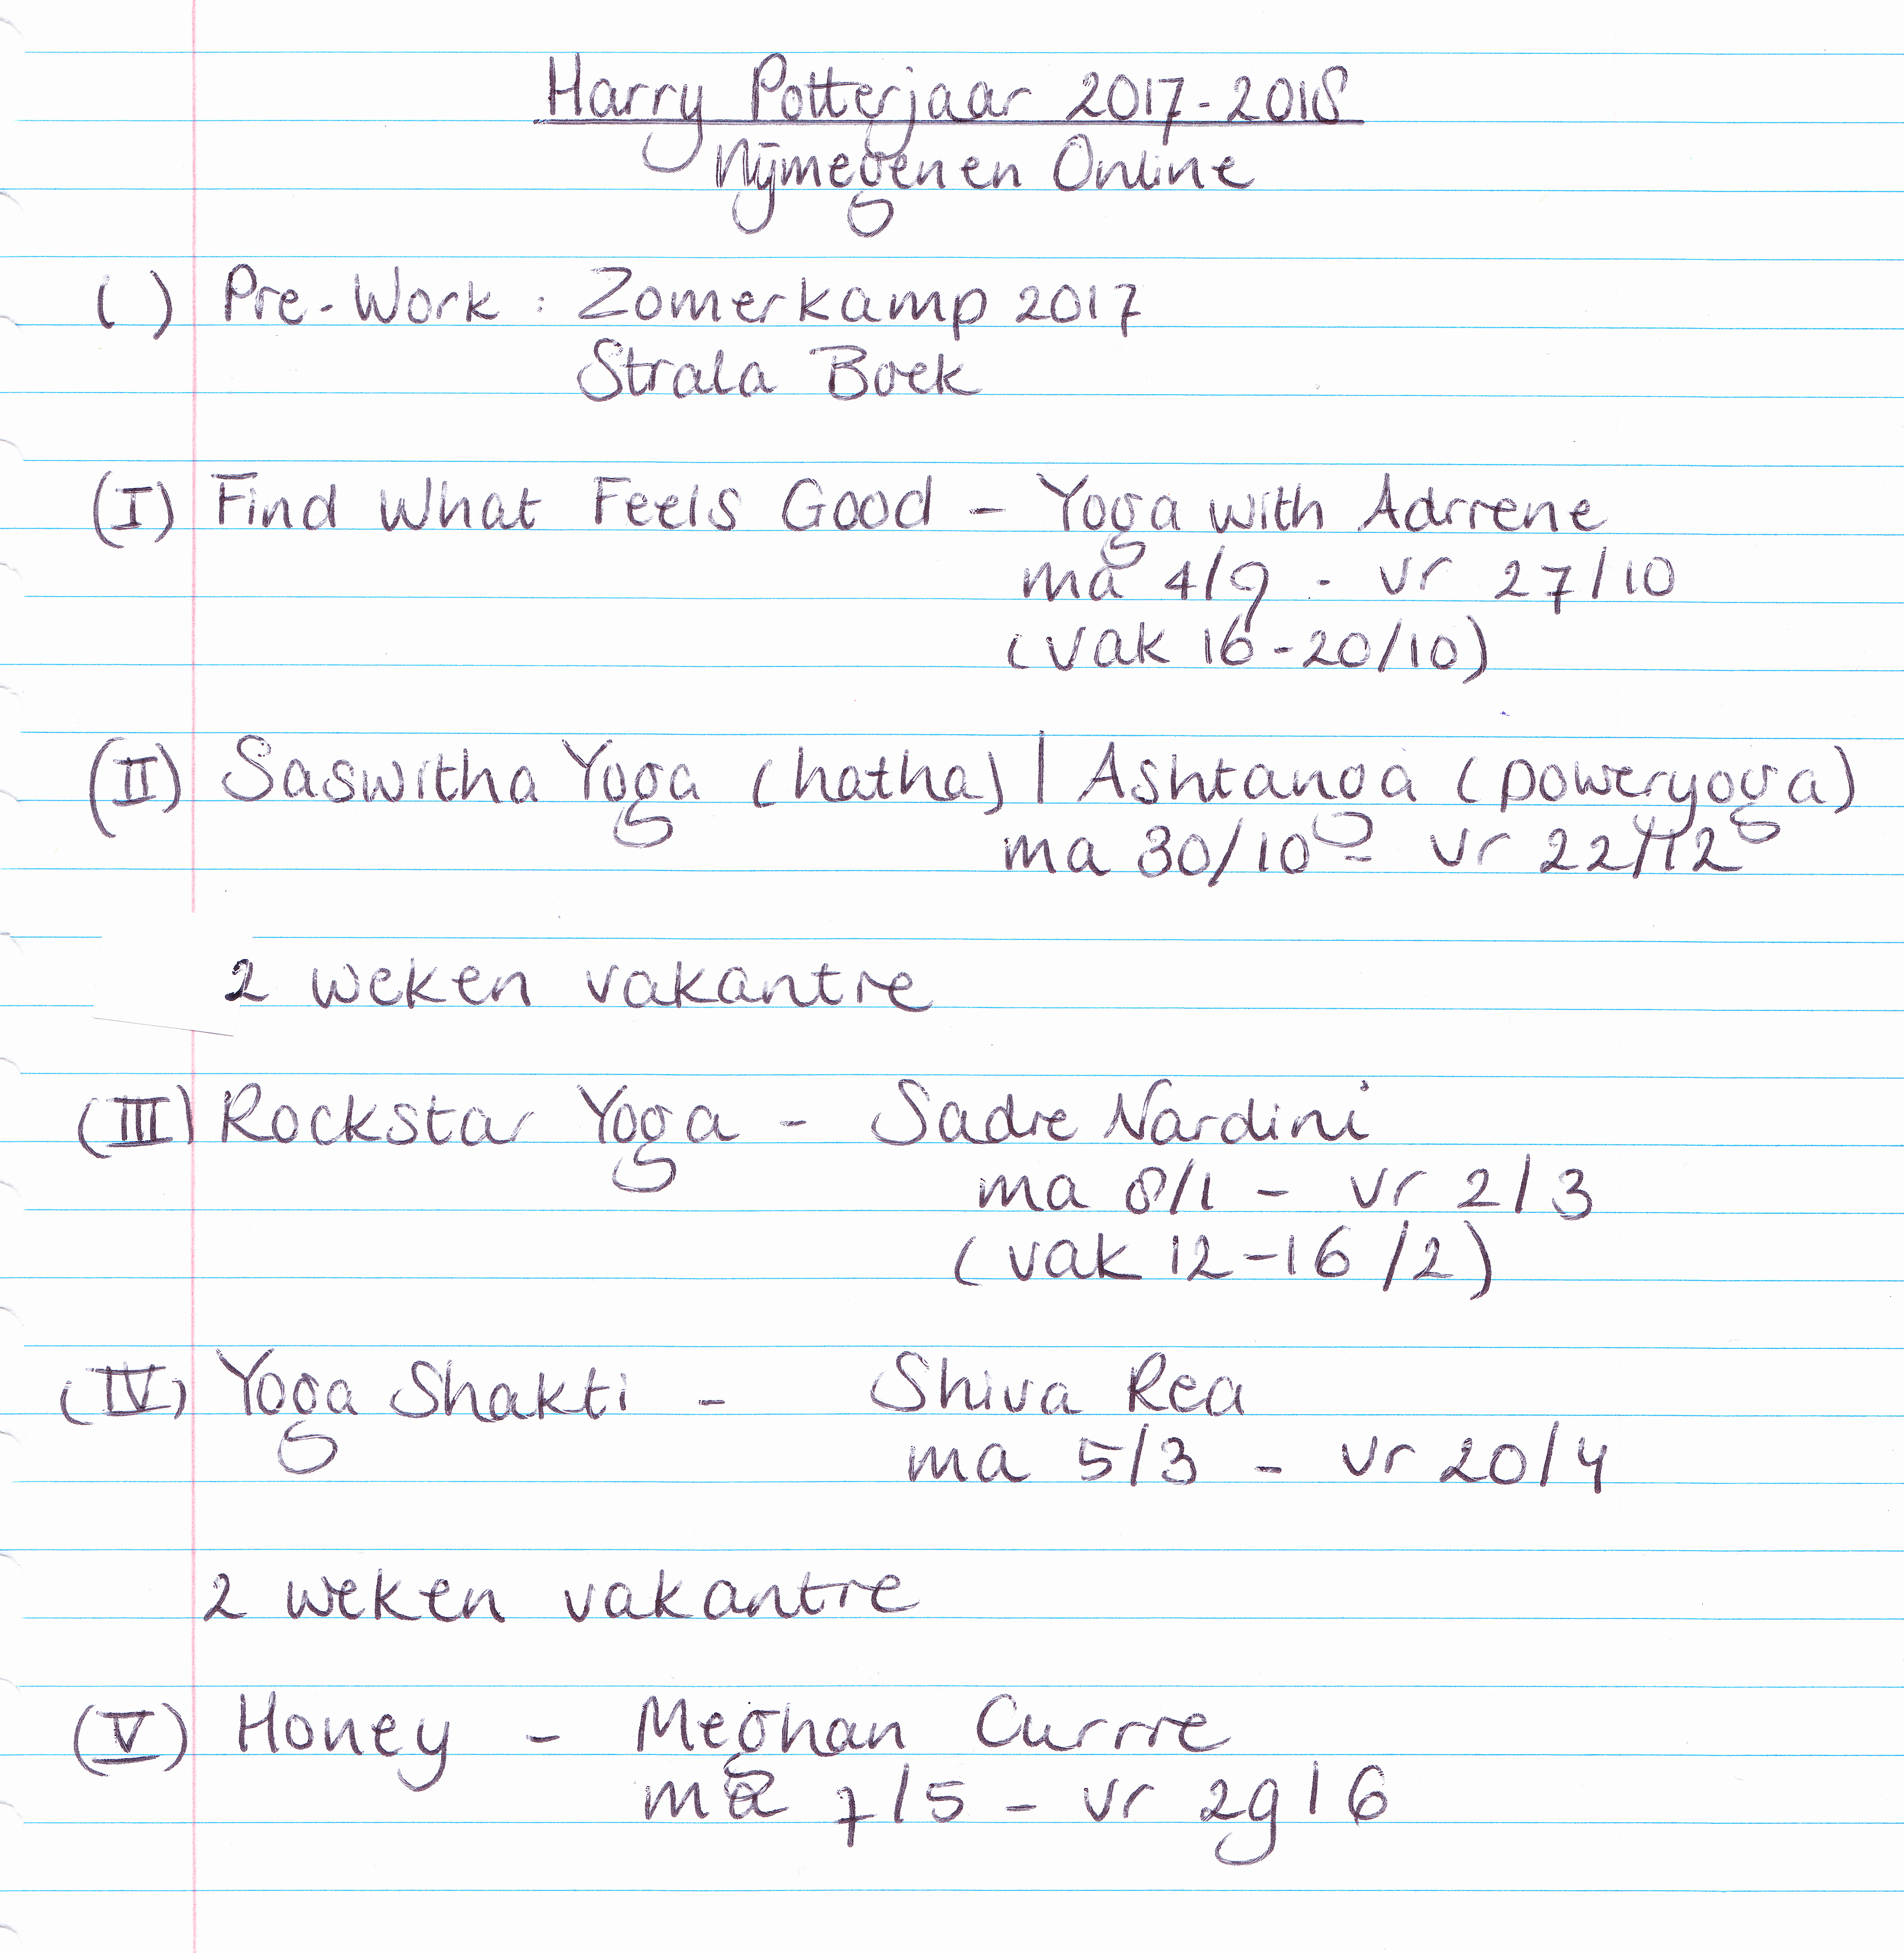 Harry Potterjaar 2017-2018
Nijmegen en Online
( ) Pre-Work : Zomerkamp 2017
Strala Boek
(I) Find What Feels Good - Yoga with Adriene
ma 4/9 - vr 27/10
(vak 16-20/10)
(II) Saswitha Yoga (hatha) | Ashtanga (poweryoga)
ma 30/10 - vr 22/12
2 weken vakantie
(III) Rockstar Yoga - Sadie Nardini
ma 8/1 - vr 2/3
(vak 12-16/2)
(IV) Yoga Shakti - Shiva Rea
ma 5/3 - vr 20/4
2 weken vakantie
(V) Honey - Meghan Currie
ma 7/5 - vr 29/6